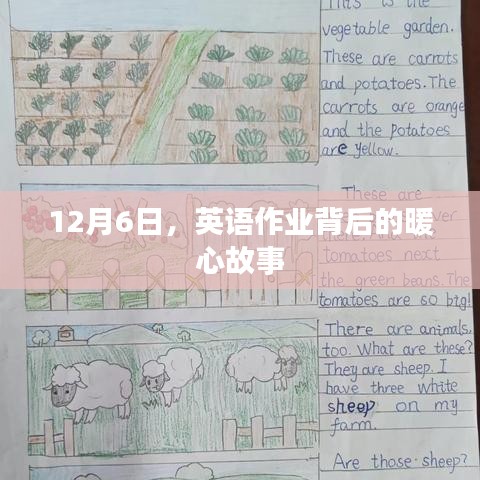 This is the
vegetable garden.
These are carrots
and potatoes. The
carrots are orange
and the potatoes
are yellow.
12月6日，英语作业背后的暖
心故事
These are
tomatoes next
the green beans. The
tomatoes are so big!
There are animals,
too. What are these?
They are sheep. I
have three white
sheep on my
farm.
Are those sheep?